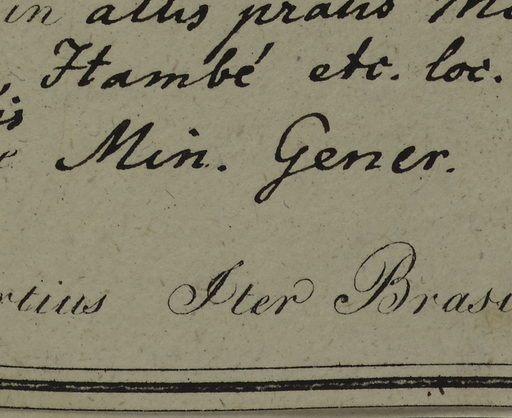 in altis pratis
Itambé etc. loc.
is
Min. Gener.
rtius Iter Brasi